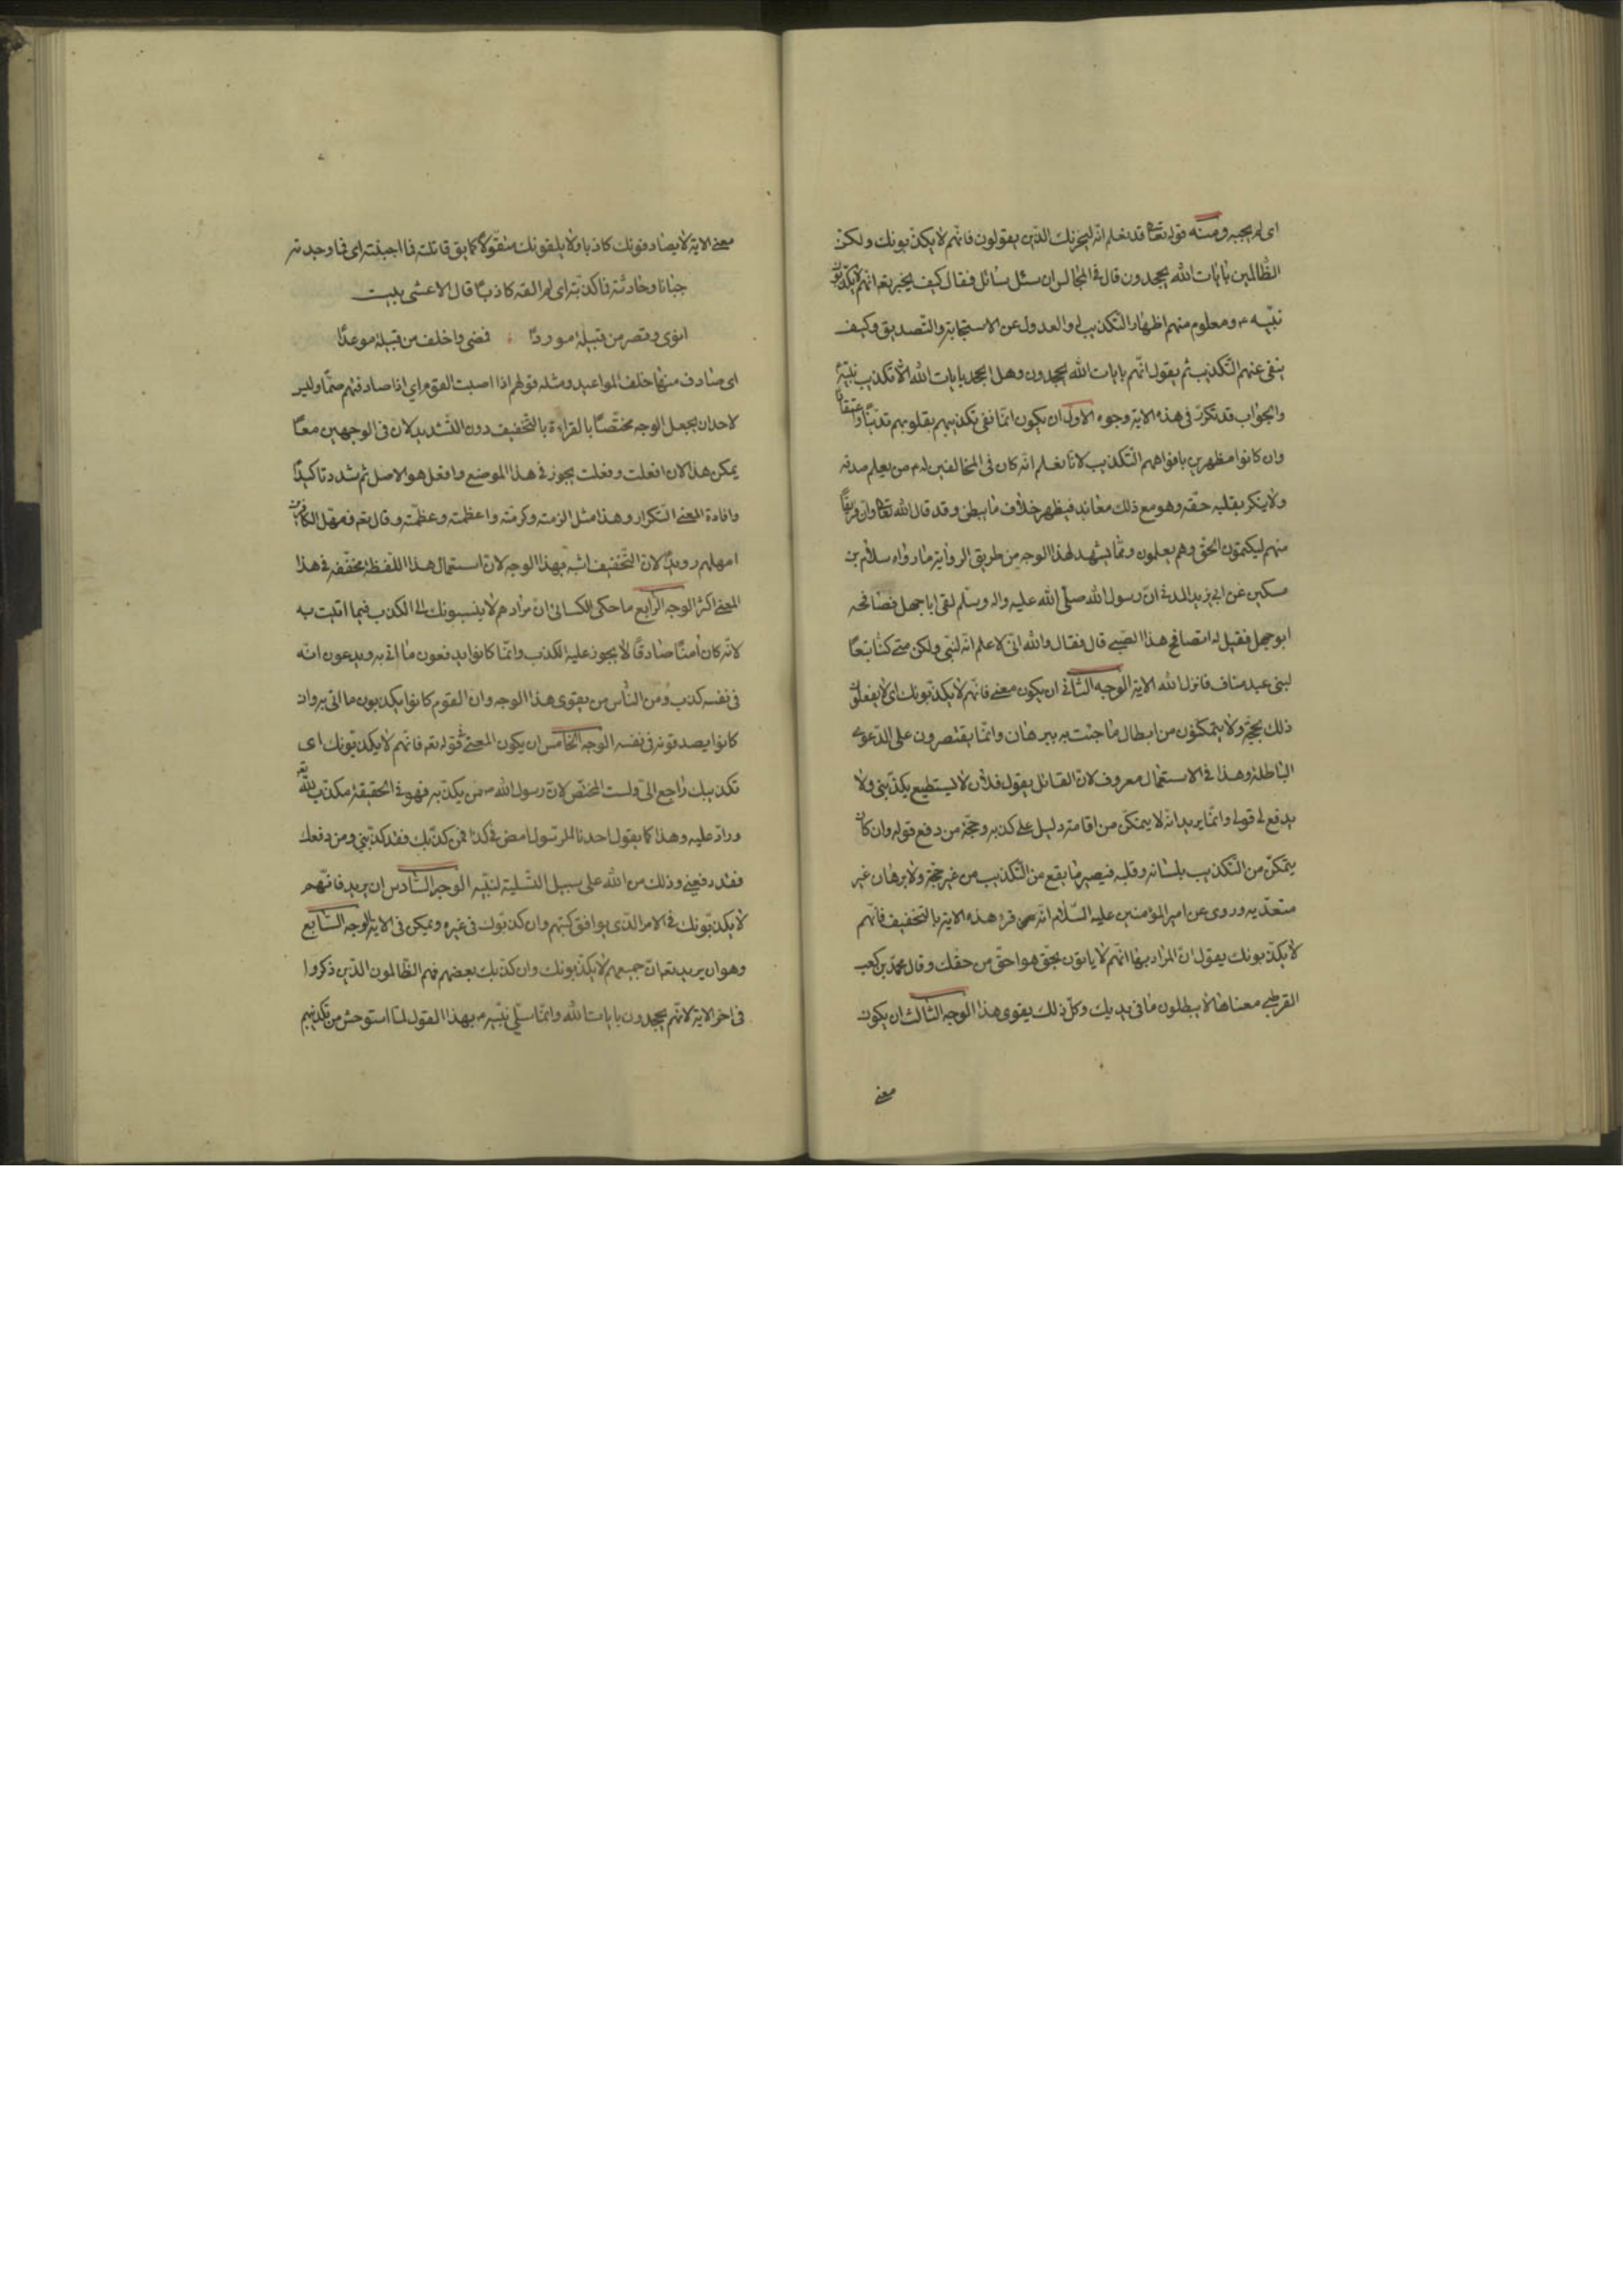 اى لم يجبه ومنه قوله تعالى قد نعلم انّه ليحزنك الذين يقولون فانّهم لا يكذّبونك ولكنّ
الظّالمين بايات الله يجحدون قال فى المجالس ان سئل سائل فقال كيف يخبر تعم انّهم لا يكذّبون
نبيّه ص ومعلوم منهم اظهار التّكذيب له والعدول عن الاستجابة والتّصديق وكيف
ينفى عنهم التّكذيب ثم يقول انّهم بايات الله يجحدون وهل الجحد بايات الله الّا تكذيب نبيّه
والجواب قد تكرّر فى هذه الاية وجوه الاول ان يكون انّما نفى تكذيبهم بقلوبهم تديّنا واعتقادا
وان كانوا مظهرين بافواههم التّكذيب لانّا نعلم انّه كان فى المخالفين له م من يعلم صدقه
ولا ينكر بقلبه حقّه وهو مع ذلك معاند فيظهر خلاف ما يبطن وقد قال الله تعالى وانّ فريقا
منهم ليكتمون الحق وهم يعلمون وممّا يشهد لهذا الوجه من طريق الرواية ما رواه سلام بن
مسكين عن ابى يزيد المدنى انّ رسول الله صلّى الله عليه واله وسلّم لقى ابا جهل فصافحه
ابو جهل فقيل له اتصافح هذا الصّبى قال فقال والله انّى لاعلم انّه لنبّى ولكن متى كنّا تبعًا
لبنى عبد مناف فانزل الله الاية الوجه الثانى ان يكون معنى فانّهم لا يكذّبونك اى لا يفعلون
ذلك بحجّة ولا يتمكّنون من ابطال ما جئت به ببرهان وانّما يقتصرون على الدّعوى
الباطلة وهذا فى الاستعمال معروف لان القائل يقول فلان لا يستطيع يكذّبنى ولا
يدفع لى قولى وانّما يريد انّه لا يتمكّن من اقامة دليل على كذبه وحجّة من دفع قوله وان كان
يتمكّن من التّكذيب بلسانه وقلبه فيصير ما يقع من التّكذيب من غير حجّة ولا برهان غير
متعدّ به وروى عن امير المؤمنين عليه السّلام انّه قرء هذه الاية بالتخفيف فانّهم
لا يكذبونك يقول انّ المراد بها انّهم لا ياتون بحقّ هو احقّ من حقّك وقال محمّد بن كعب
القرظى معناها لا يبطلون ما فى يديك وكلّ ذلك يقوى هذا الوجه الثالث ان يكون
معنى
معنى الاية لا يصادفونك كاذبا ولا يلفونك متقوّلًا كما يق قاتلته فما اجبنته اى فما وجدته
جبانا وحادثته فما اكذبته اى لم القه كاذبًا قال الاعشى بيت
اثوى وقصر من قبيلة موردًا فمضى واخلف من قبيلة موعدًا
اى صادف منها خلف المواعيد ومثله قولهم اذا اصبت القوم اى اذا صادفتهم صمّا وليس
لاحد ان يجعل الوجه مختصًّا بالقراءة بالتخفيف دون التشديد لان فى الوجهين معًا
يمكن هذا لان افعلت وفعلت يجوز فى هذا الموضع وافعل هو الاصل ثم شدد تاكيدًا
وافادة المعنى التكرار وهذا مثل اكرمته وكرمته واعظمته وعظمته وقال تعم فمهّل الكافرين
امهلهم رويدًا لانّ التّخفيف اشبه بهذا الوجه لانّ استعمال هذا اللّفظة مخفّفة فى هذا
المعنى اكثر الوجه الرابع ما حكى الكسائى انّ مرادهم لا ينسبونك الى الكذب فيما اتيت به
لانّه كان امنًا صادقًا لا يجوز عليه الكذب وانّما كانوا يدفعون ما اتى به ويدعون انّه
فى نفسه كذب ومن النّاس من يقوى هذا الوجه وان القوم كانوا يكذبون ما اتى به وان
كانوا يصدقونه فى نفسه الوجه الخامس ان يكون المعنى فى قوله تعم فانّهم لا يكذّبونك اى
تكذيبك راجع الىّ ولست المختصّ لانّ رسول الله ص فمن يكذّبه فهو فى الحقيقة مكذّب لله تعم
ورادّ عليه وهذا كما يقول احدنا لمرسوله امض فى كذا فمن كذّبك فقد كذّبنى ومن دفعك
فقد دفعنى وذلك من الله على سبيل التّسلية لنبيّه الوجه السّادس ان يريد فانّهم
لا يكذّبونك فى الامر الذّى يوافق كتبهم وان كذّبوك فى غيره ويمكن فى الاية الوجه السّابع
وهو ان يريد تعم انّ جميعهم لا يكذّبونك وان كذّبك بعضهم فهم الظّالمون الذّين ذكروا
فى اخر الاية لانّهم يجحدون بايات الله وانّما سلّى نبيّه ص بهذا القول لمّا استوحش من تكذيبهم